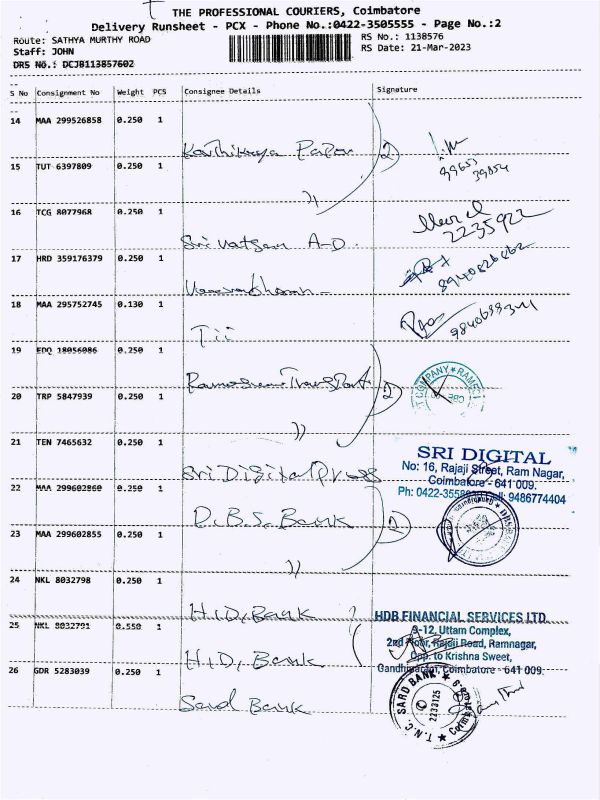 THE PROFESSIONAL COURIERS, Coimbatore
Delivery Runsheet - PCX - Phone No.:0422-3505555 - Page No.:2
Route: SATHYA MURTHY ROAD
RS No.: 1138576
Staff: JOHN
RS Date: 21-Mar-2023
DRS No.: DCJB113857602
S No Consignment No Weight PCS Consignee Details Signature
14 MAA 299526858 0.250 1
Karthikeya Paper 2
99653
39854
15 TUT 6397809 0.250 1
16 TCG 8077968 0.250 1
2235922
Sri Vatsan A-D.
17 HRD 359176379 0.250 1
8940826862
18 MAA 295752745 0.130 1
Tii
19 EDQ 18056086 0.250 1
Transport 2
20 TRP 5847939 0.250 1
21 TEN 7465632 0.250 1
SRI DIGITAL
No: 16, Rajaji Street, Ram Nagar,
Coimbatore - 641 009.
Sri Digital Press
22 MAA 299602860 0.250 1
9486774404
D.B.S. Bank 2
23 MAA 299602855 0.250 1
24 NKL 8032798 0.250 1
H.D, Bank
HDB FINANCIAL SERVICES LTD
25 NKL 8032791 0.550 1
9-12, Uttam Complex,
2nd Floor, Rajaji Road, Ramnagar,
H.D, Bank
Opp. to Krishna Sweet,
Gandhipuram, Coimbatore - 641 009.
26 GDR 5283039 0.250 1
Sard Bank
T.N.C. SARD BANK
2233125